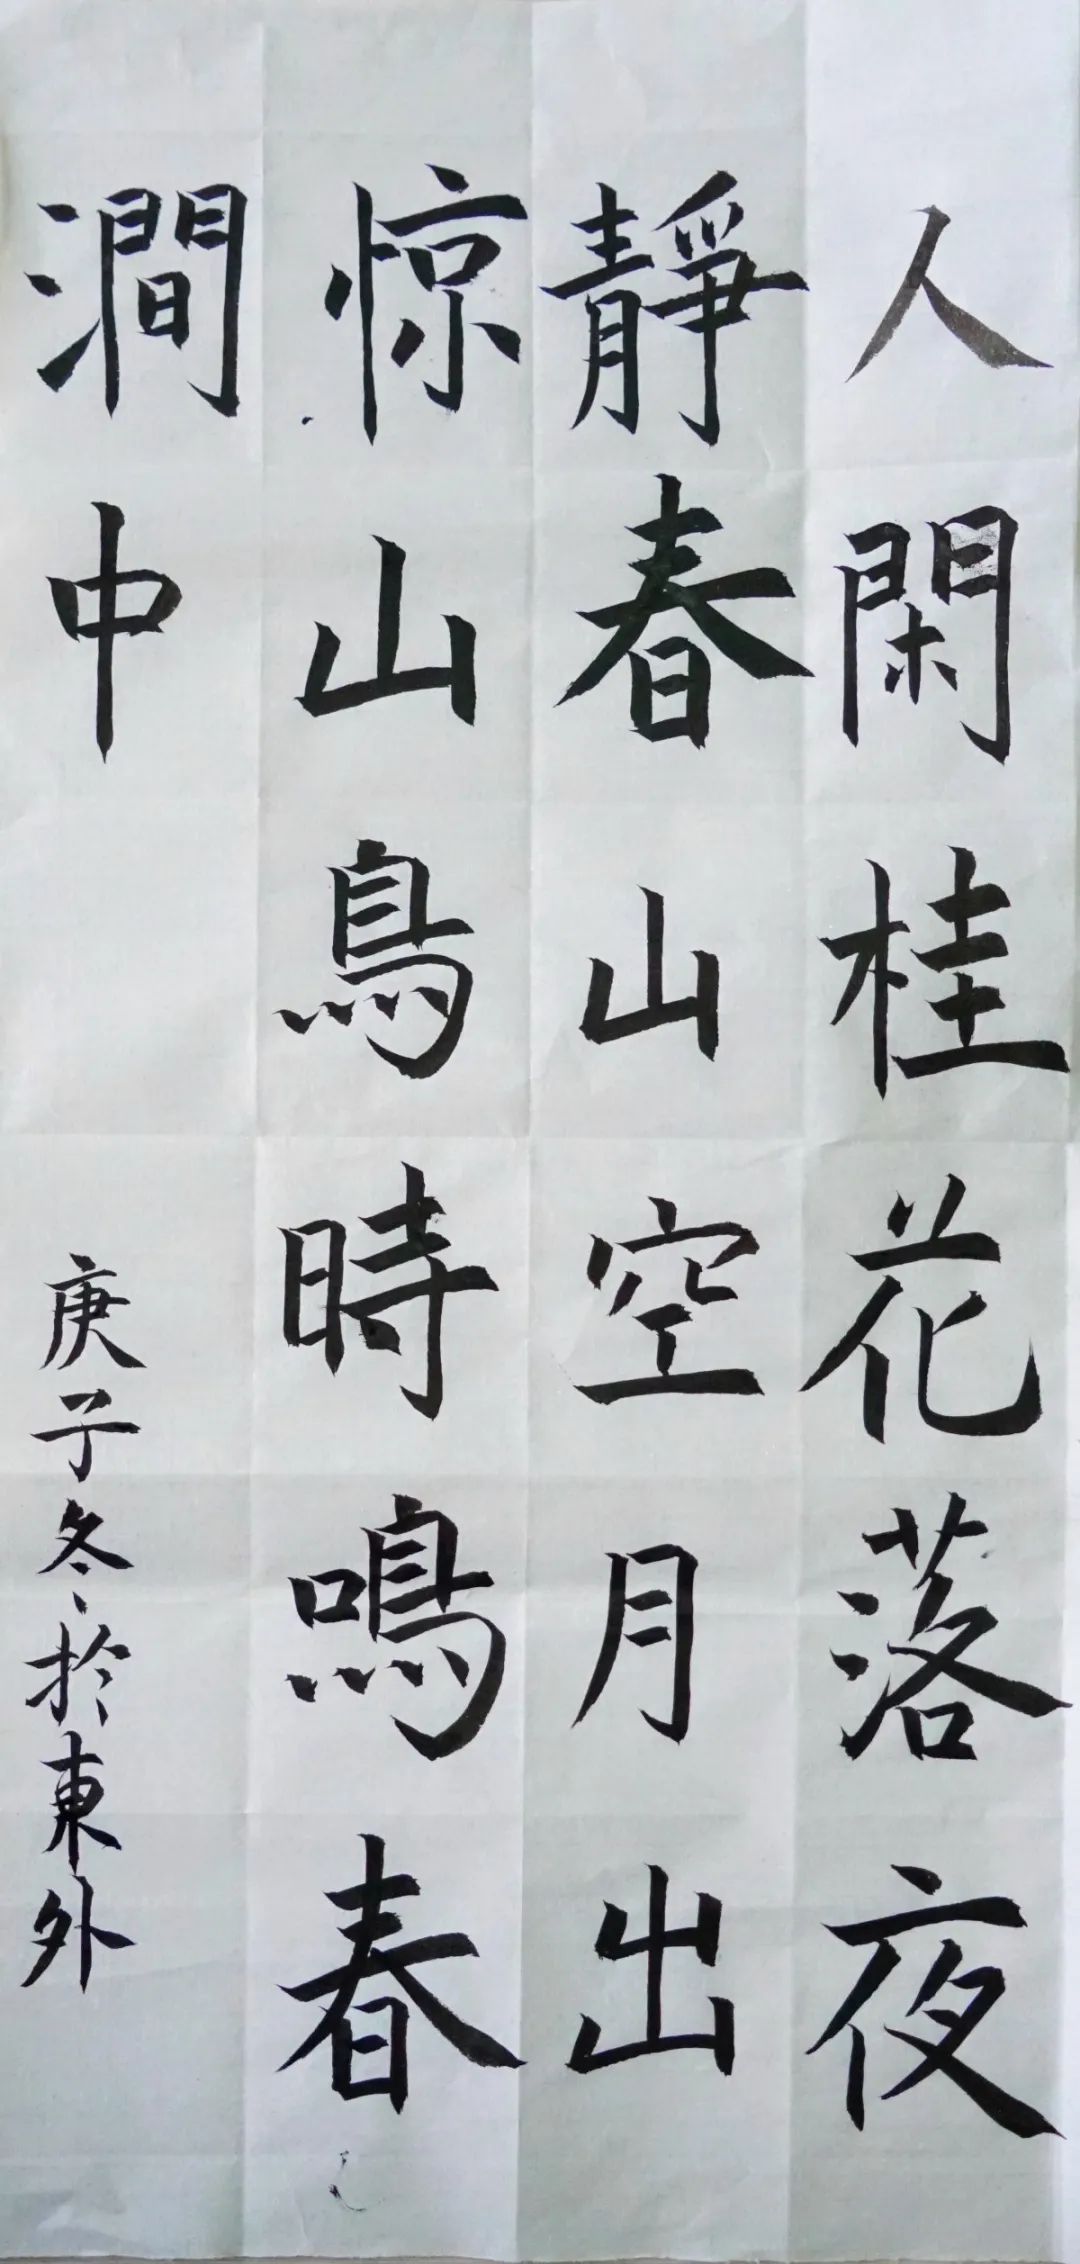 人閑桂花落夜
靜春山空月出
惊山鳥時鳴春
澗中
庚子冬於東外